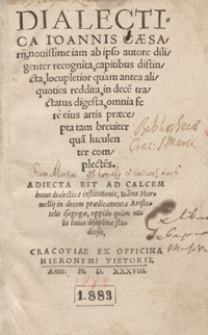 DIALECTI
CA IOANNIS CÆSA
rii, nouissime iam ab ipso autore dili
genter recognita, capitibus distin
cta, locupletior quàm antea ali
quoties reddita, in decē tra
ctatus digesta, omnia fe
rè eius artis præce
pta tam breuiter
quā luculen
ter com
plectēs.
Bibliotheca
ADIECTA EST AD CALCEM
huius dialecticæ institutionis,
in decem prædicamenta Aristo
telis isagoge, oppido quàm uti
lis huius disciplinæ stu
diosis.
CRACOVIAE EX OFFICINA
HIERONYMI VIETORIS.
ANN. M. D. XXXVIII.
1.883